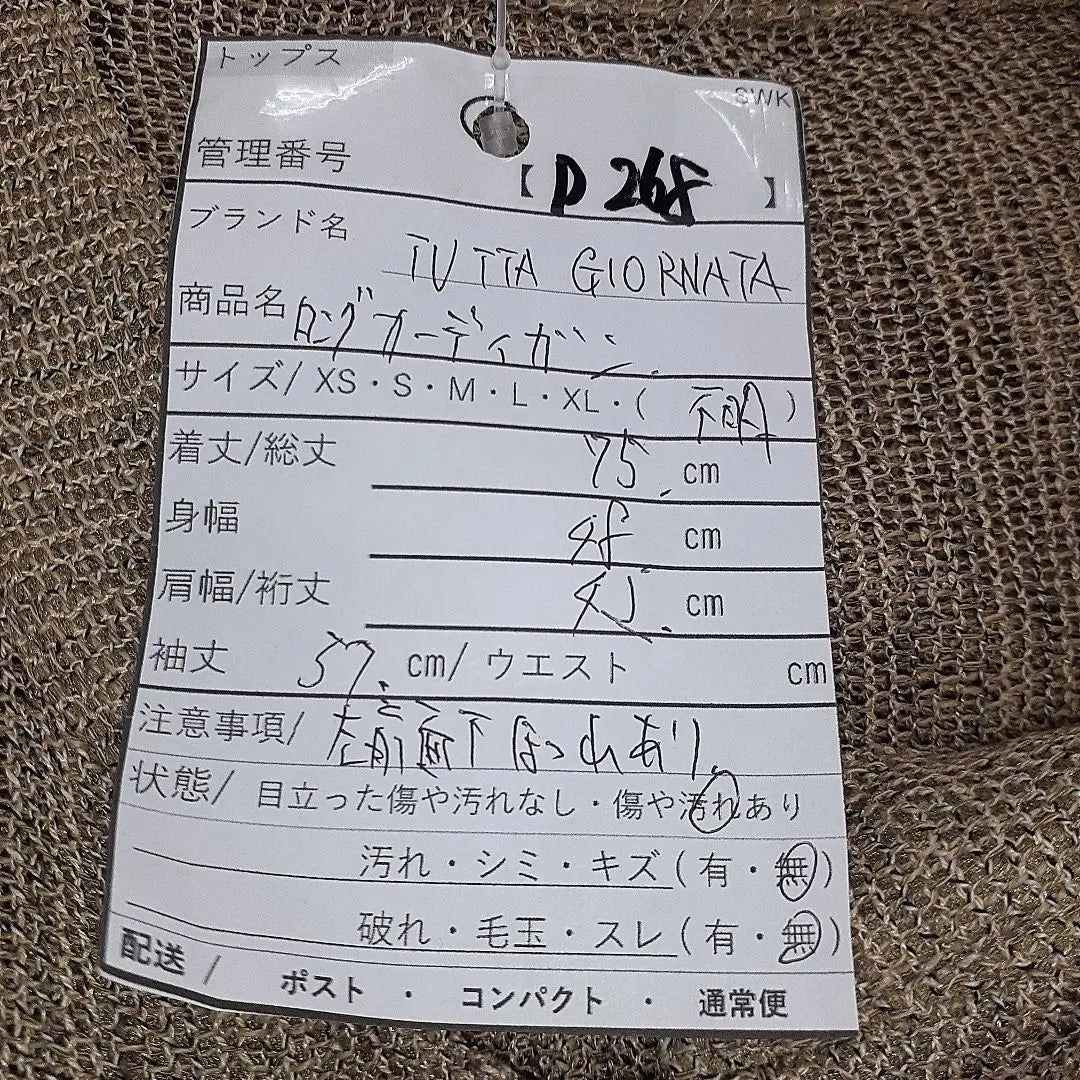 トップス
SWK
管理番号 【D268】
ブランド名 TUTTA GIORNATA
商品名 ロングカーディガン
サイズ/ XS・S・M・L・XL・( 不明 )
着丈/総丈 75. cm
身幅 48 cm
肩幅/裄丈 45. cm
袖丈 57. cm/ ウエスト cm
注意事項/ 左前面下ほつれあり。
状態/ 目立った傷や汚れなし・傷や汚れあり
汚れ・シミ・キズ(有・無)
破れ・毛玉・スレ(有・無)
配送 / ポスト ・ コンパクト ・ 通常便